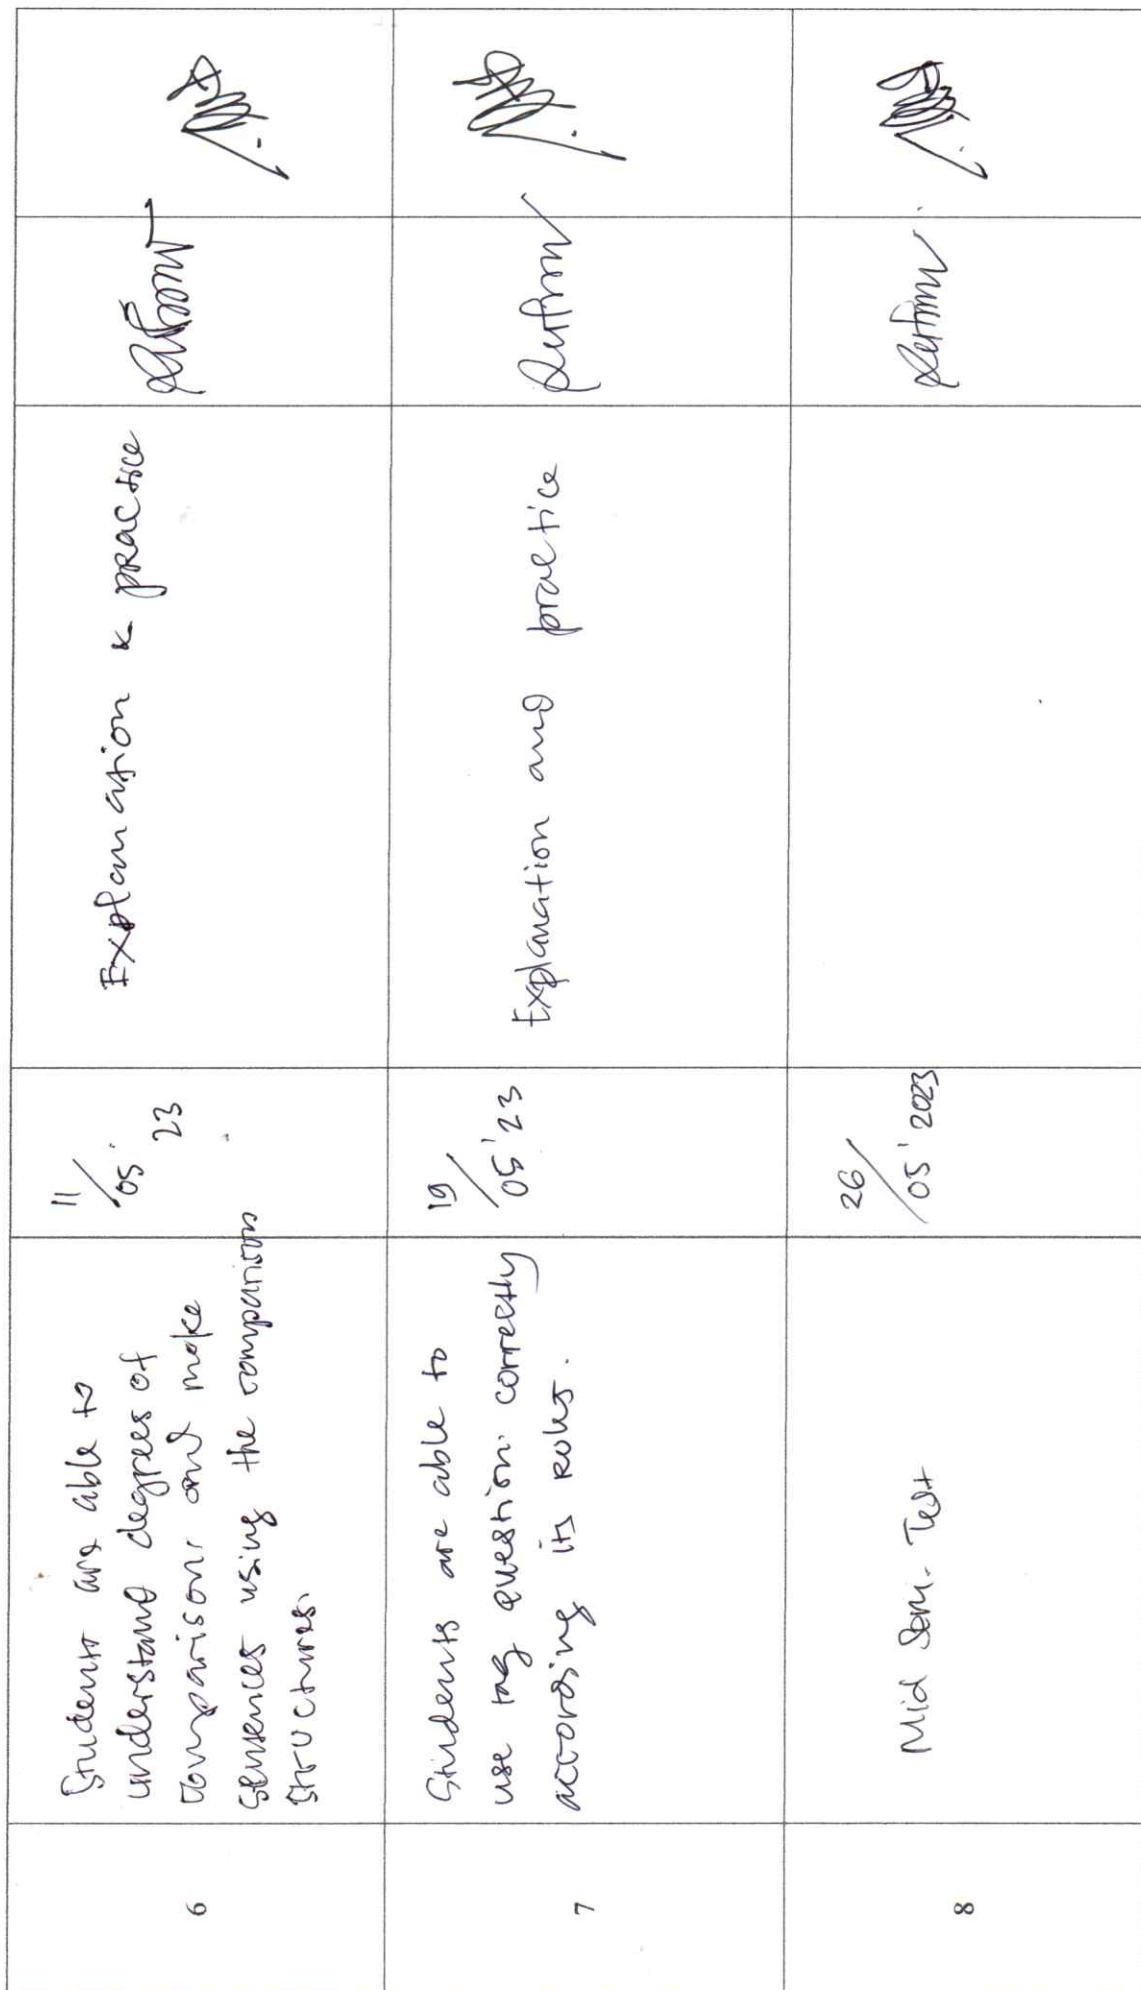 6
Students are able to
understand degrees of
comparison and make
senences using the comparison
structures.
11/05'23
Explanation & practice
7
Students are able to
use tag question correctly
according its rules.
19/05'23
Explanation and practice
8
Mid Sem. Test
26/05'2023